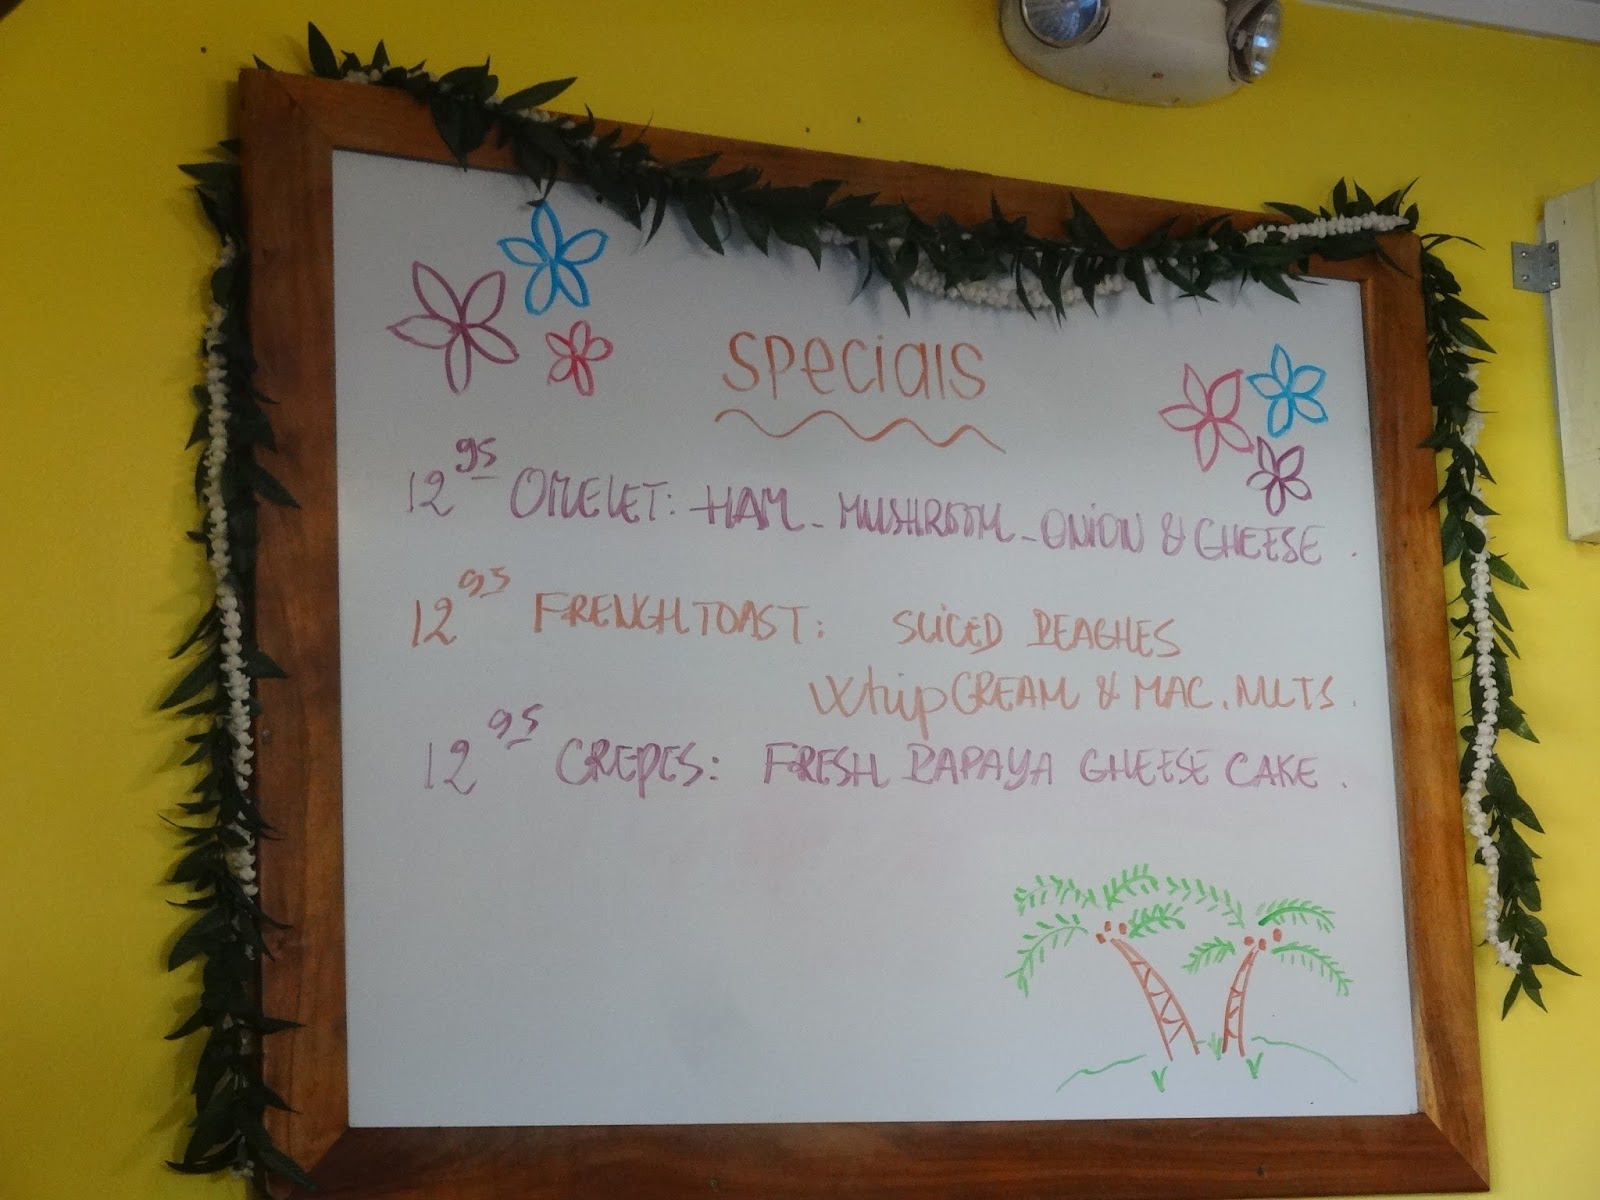 SPECIALS
12 95 OMELET: HAM - MUSHROOM - ONION & CHEESE.
12 95 FRENCH TOAST: SLICED PEACHES
Whip CREAM & MAC. NUTS.
12 95 CREPES: FRESH PAPAYA CHEESE CAKE.